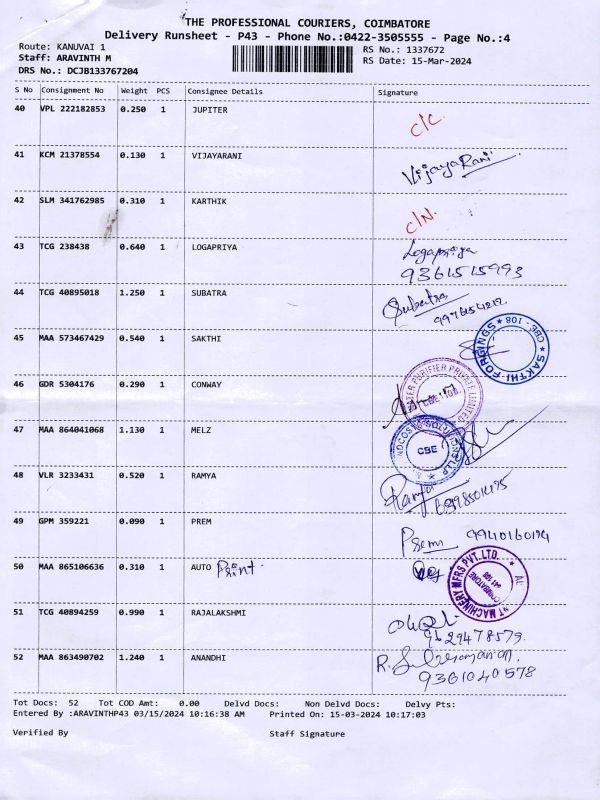 THE PROFESSIONAL COURIERS, COIMBATORE
Delivery Runsheet - P43 - Phone No.:0422-3505555 - Page No.:4
Route: KANUVAI 1 RS No.: 1337672
Staff: ARAVINTH M RS Date: 15-Mar-2024
DRS No.: DCJB133767204
S No Consignment No Weight PCS Consignee Details Signature
40 VPL 222182853 0.250 1 JUPITER C/C.
41 KCM 21378554 0.130 1 VIJAYARANI Vijaya Rani
42 SLM 341762985 0.310 1 KARTHIK C/N.
43 TCG 238438 0.640 1 LOGAPRIYA Logapriya
9361515993
44 TCG 40895018 1.250 1 SUBATRA Subatra
45 MAA 573467429 0.540 1 SAKTHI SAKTHI FORGINGS CBE - 108
46 GDR 5304176 0.290 1 CONWAY PURIFIER PRIVATE LIMITED CBE-108
47 MAA 864041068 1.130 1 MELZ CBE
48 VLR 3233431 0.520 1 RAMYA Ramya
49 GPM 359221 0.090 1 PREM Prem
50 MAA 865106636 0.310 1 AUTO Print MACHINERY MFRS PVT. LTD. COIMBATORE 641 108
51 TCG 40894259 0.990 1 RAJALAKSHMI
9629478579.
52 MAA 863490702 1.240 1 ANANDHI R. Subramanian
9361040578
Tot Docs: 52 Tot COD Amt: 0.00 Delvd Docs: Non Delvd Docs: Delvy Pts:
Entered By :ARAVINTHP43 03/15/2024 10:16:38 AM Printed On: 15-03-2024 10:17:03
Verified By Staff Signature